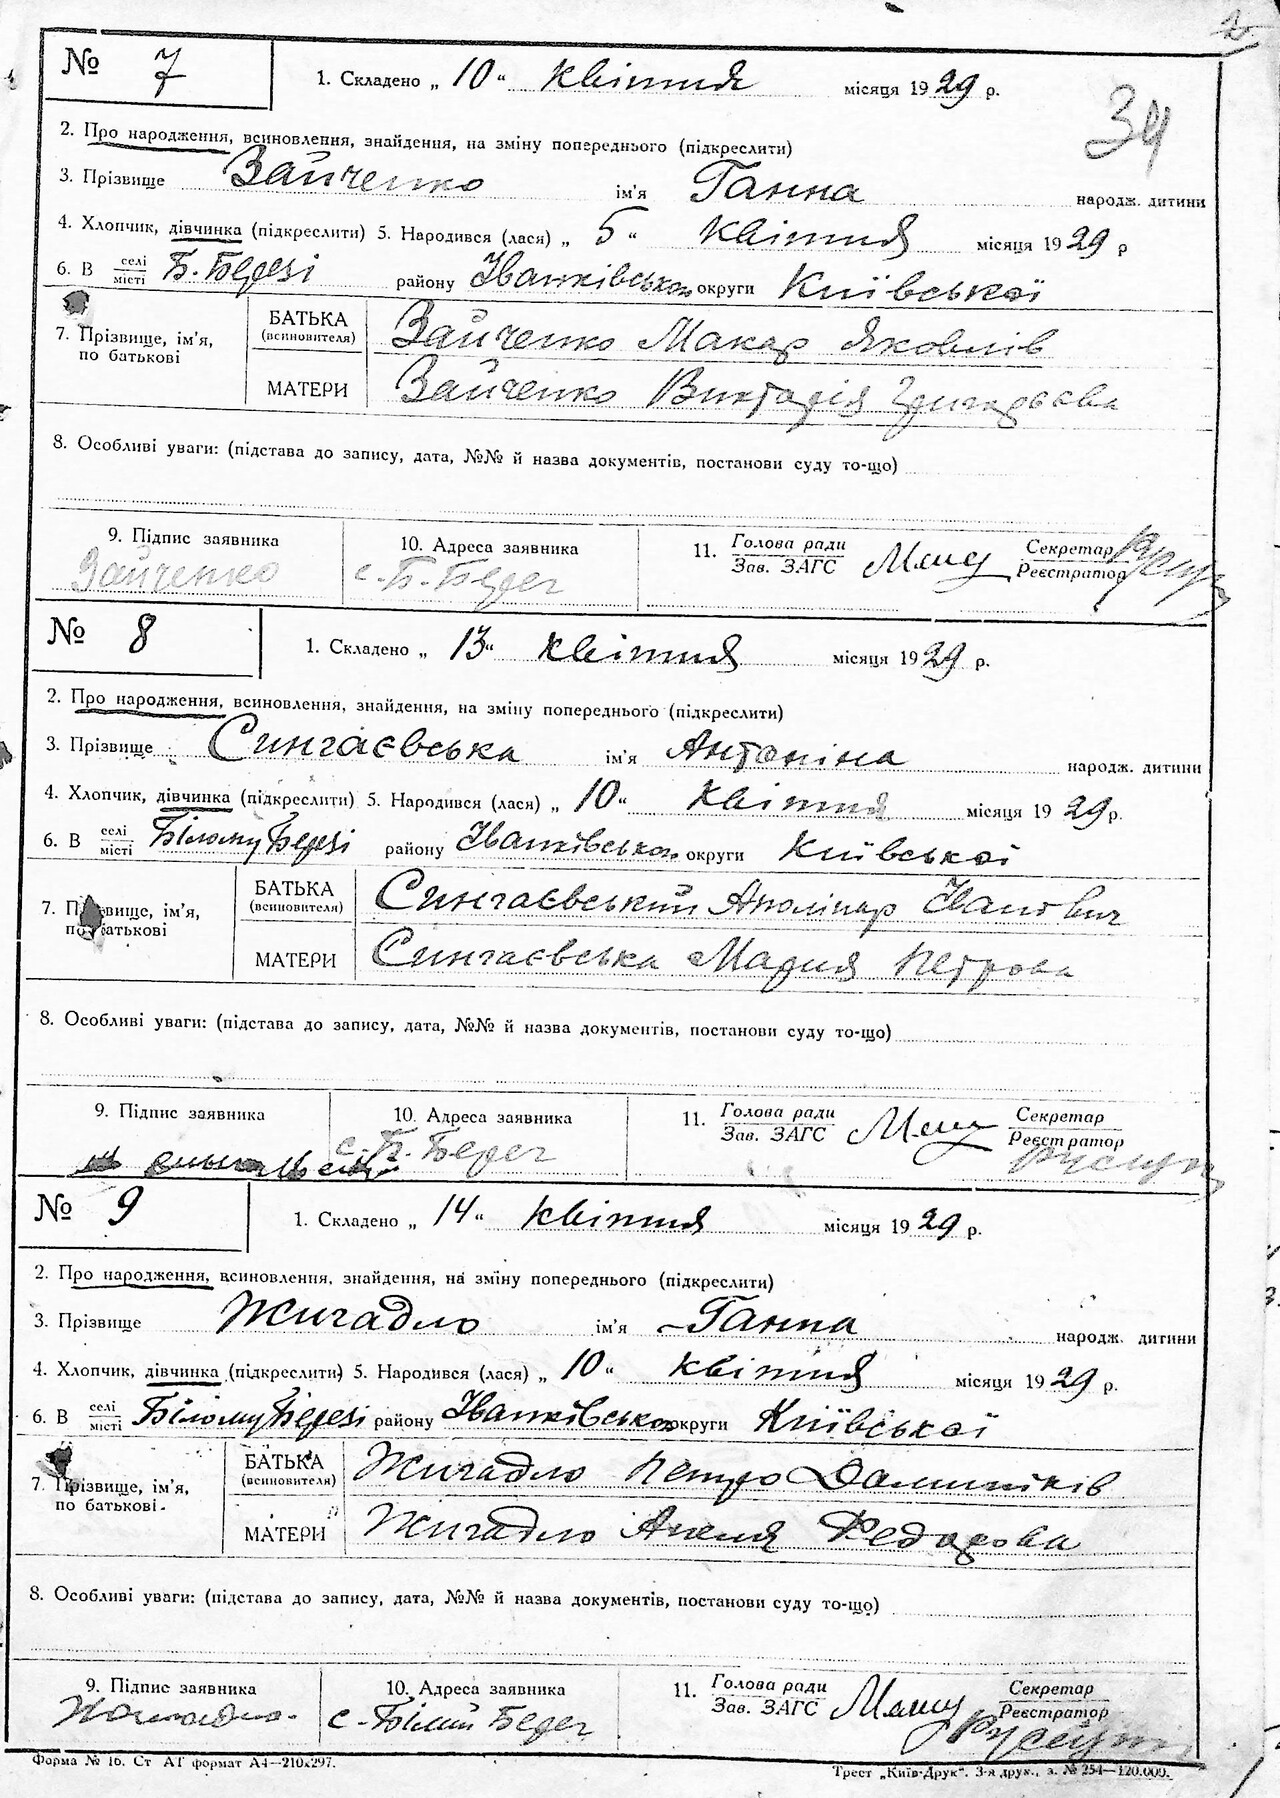 34
№ 7 1. Складено „ 10 “ квітня місяця 1929 р.
2. Про народження, всиновлення, знайдення, на зміну попереднього (підкреслити)
3. Прізвище Зайченко ім'я Ганна народж. дитини
4. Хлопчик, дівчинка (підкреслити) 5. Народився (лася) „ 5 “ квітня місяця 1929 р
6. В селі місті Б. Березі району Іванківськом округи Київської
7. Прізвище, ім'я, по батькові БАТЬКА (всиновителя) Зайченко Макар Яковлів
МАТЕРИ Зайченко Викторія Григорьєва
8. Особливі уваги: (підстава до запису, дата, №№ й назва документів, постанови суду то-що)
9. Підпис заявника 10. Адреса заявника 11. Голова ради Зав. ЗАГС Секретар Реєстратор
Зайченко с. Б-Берег
№ 8 1. Складено „ 13 “ квітня місяця 1929 р.
2. Про народження, всиновлення, знайдення, на зміну попереднього (підкреслити)
3. Прізвище Сингаєвська ім'я Антоніна народж. дитини
4. Хлопчик, дівчинка (підкреслити) 5. Народився (лася) „ 10 “ квітня місяця 1929 р.
6. В селі місті Білому Березі району Іванківськом округи Київської
7. Прізвище, ім'я, по батькові БАТЬКА (всиновителя) Сингаєвський Аполінар Іванович
МАТЕРИ Сингаєвська Мария Петрова
8. Особливі уваги: (підстава до запису, дата, №№ й назва документів, постанови суду то-що)
9. Підпис заявника 10. Адреса заявника 11. Голова ради Зав. ЗАГС Секретар Реєстратор
с. Б. Берег
№ 9 1. Складено „ 14 “ квітня місяця 1929 р.
2. Про народження, всиновлення, знайдення, на зміну попереднього (підкреслити)
3. Прізвище Жигадло ім'я Ганна народж. дитини
4. Хлопчик, дівчинка (підкреслити) 5. Народився (лася) „ 10 “ квітня місяця 1929 р.
6. В селі місті Білому Березі району Іванківськом округи Київської
7. Прізвище, ім'я, по батькові БАТЬКА (всиновителя) Жигадло Петро Доминіків
МАТЕРИ Жигадло Анеля Федорова
8. Особливі уваги: (підстава до запису, дата, №№ й назва документів, постанови суду то-що)
9. Підпис заявника 10. Адреса заявника 11. Голова ради Зав. ЗАГС Секретар Реєстратор
с. Білий Берег
Форма № 16. Ст АТ формат А4—210х297. Трест „Київ-Друк“. 3-я друк., з. № 254—120.000.